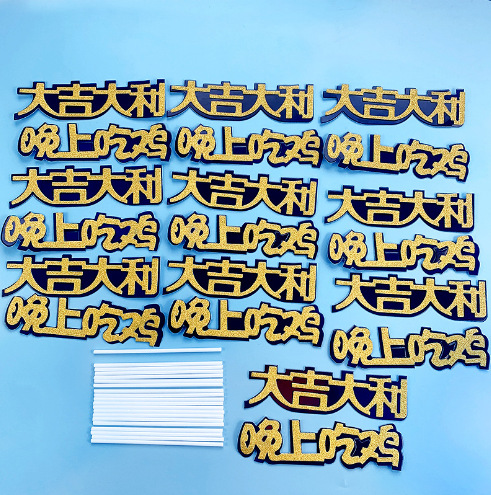 大吉大利 大吉大利 大吉大利
晚上吃鸡 晚上吃鸡 晚上吃鸡
大吉大利 大吉大利 大吉大利
晚上吃鸡 晚上吃鸡 晚上吃鸡
大吉大利 大吉大利 大吉大利
晚上吃鸡 晚上吃鸡 晚上吃鸡
大吉大利
晚上吃鸡